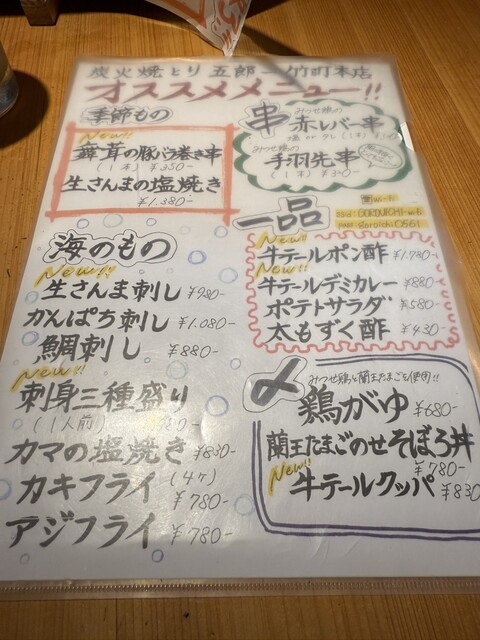 炭火焼とり 五郎一 竹町本店
オススメメニュー!!
季節もの
New!!
舞茸の豚バラ巻き串
(1本) ¥350-
生さんまの塩焼き
¥1.380-
串
みつせ鶏の
赤レバー串
みつせ鶏の
手羽先串
(1本) ¥340-
一品
New!!
牛テールポン酢 ¥1.780-
New!!
牛テールデミカレー ¥880-
ポテトサラダ ¥580-
太もずく酢 ¥430-
海のもの
New!!
生さんま刺し ¥980-
かんぱち刺し ¥1.080-
鯛刺し ¥880-
New!!
刺身三種盛り
(1人前)
カマの塩焼き ¥830-
カキフライ (4ケ) ¥780-
アジフライ ¥780-
〆
みつせ鶏と蘭王たまごを使用!!
鶏がゆ ¥680-
蘭王たまごのせそぼろ丼
¥780-
New!!
牛テールクッパ ¥830